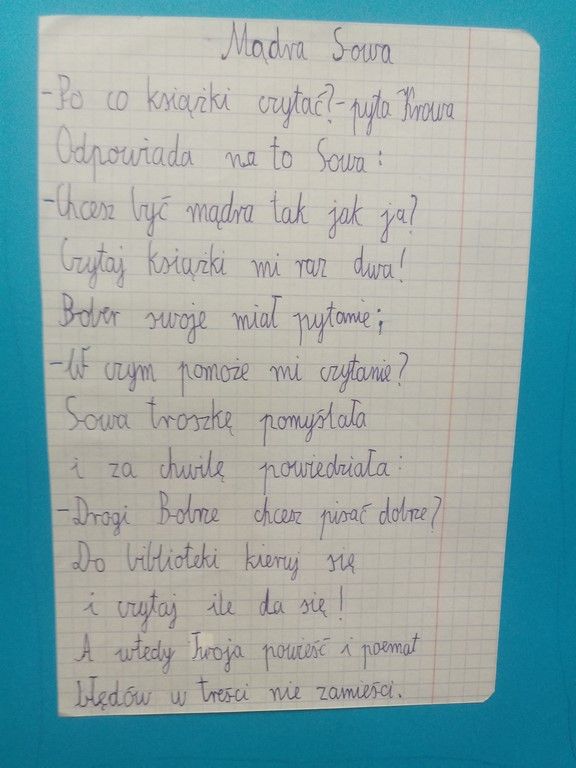 Mądra Sowa
-Po co książki czytać?-pyta Krowa
Odpowiada na to Sowa:
-Chcesz być mądra tak jak ja?
Czytaj książki mi raz dwa!
Bober swoje miał pytanie;
-W czym pomoże mi czytanie?
Sowa troszkę pomyślała
i za chwilę powiedziała:
-Drogi Bobrze chcesz pisać dobrze?
Do biblioteki kieruj się
i czytaj ile da się!
A wtedy Twoja powieść i poemat
błędów w treści nie zamieści.